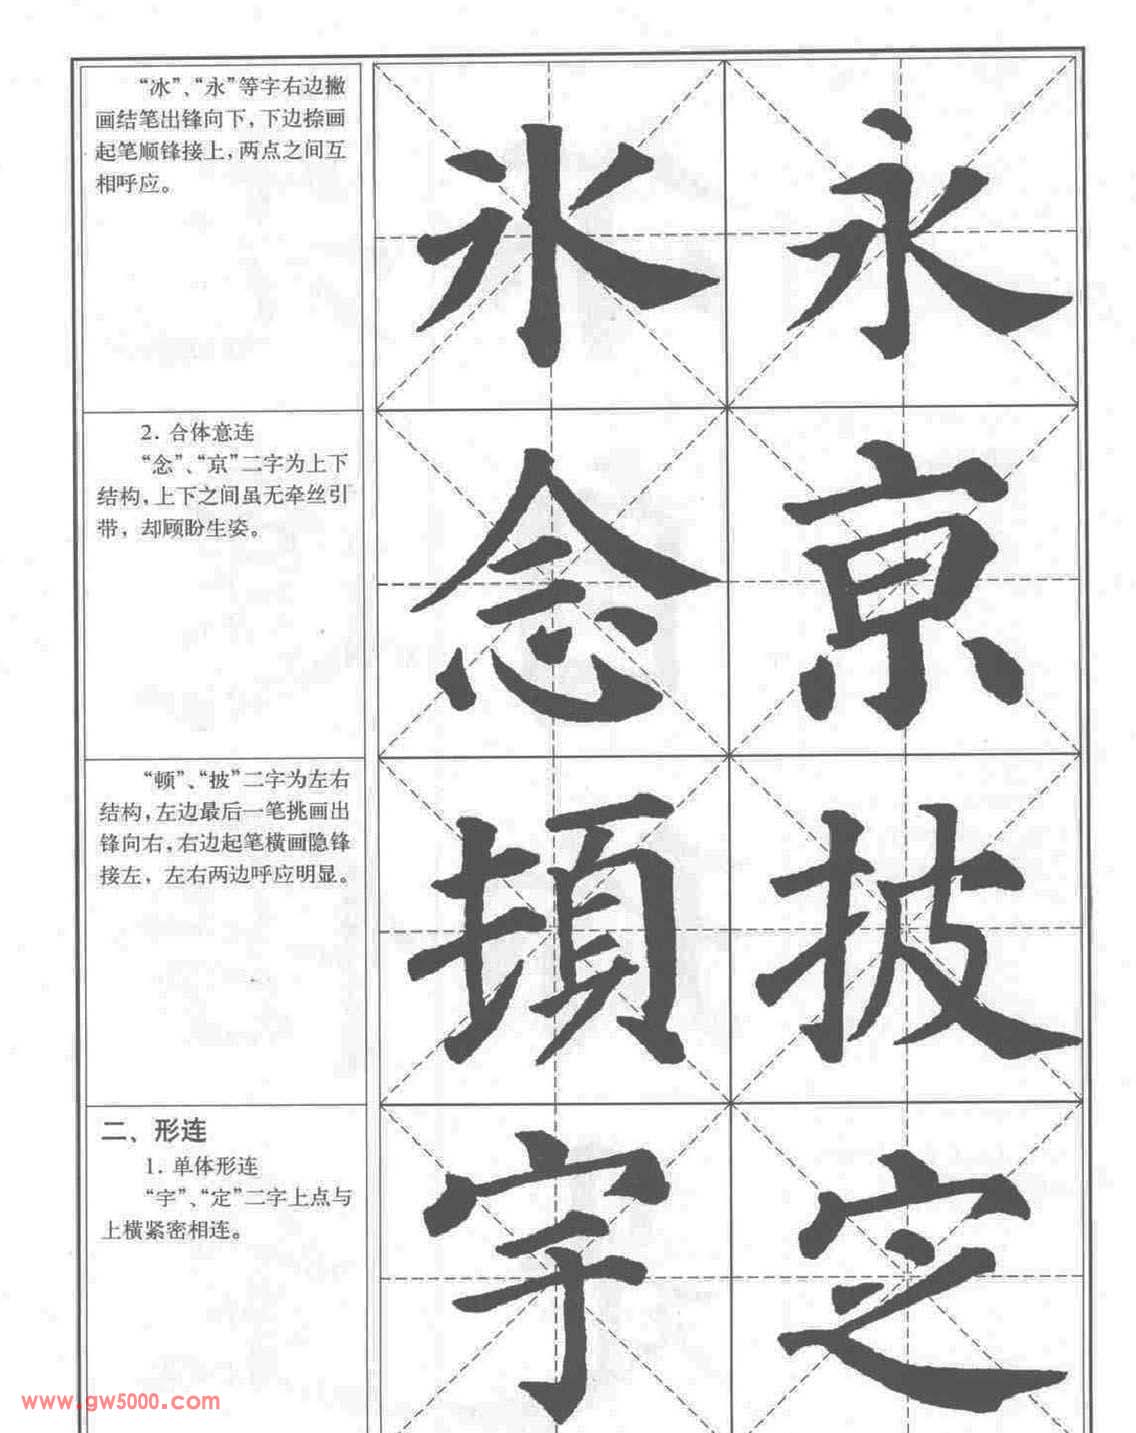 “冰”、“永”等字右边撇
画结笔出锋向下，下边捺画
起笔顺锋接上，两点之间互
相呼应。
冰 永
2. 合体意连
“念”、“京”二字为上下
结构，上下之间虽无牵丝引
带，却顾盼生姿。
念 京
“顿”、“披”二字为左右
结构，左边最后一笔挑画出
锋向右，右边起笔横画隐锋
接左，左右两边呼应明显。
頓 披
二、形连
1. 单体形连
“宇”、“定”二字上点与
上横紧密相连。
宇 定
www.gw5000.com